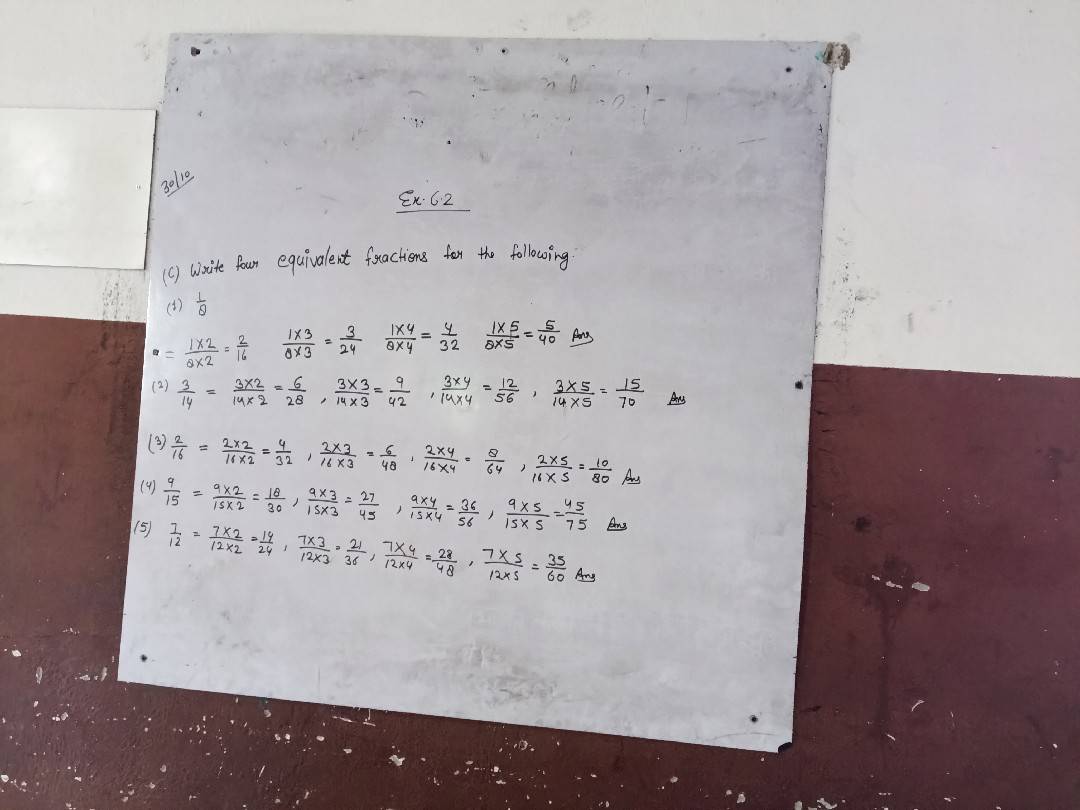 30/10
Ex. 6.2
(C) Write four equivalent fractions for the following.
(1) 1/8
= 1×2/8×2 = 2/16 1×3/8×3 = 3/24 1×4/8×4 = 4/32 1×5/8×5 = 5/40 Ans
(2) 3/14 = 3×2/14×2 = 6/28 , 3×3/14×3 = 9/42 , 3×4/14×4 = 12/56 , 3×5/14×5 = 15/70 Ans
(3) 2/16 = 2×2/16×2 = 4/32 , 2×3/16×3 = 6/48 , 2×4/16×4 = 8/64 , 2×5/16×5 = 10/80 Ans
(4) 9/15 = 9×2/15×2 = 18/30 , 9×3/15×3 = 27/45 , 9×4/15×4 = 36/56 , 9×5/15×5 = 45/75 Ans
(5) 7/12 = 7×2/12×2 = 14/24 , 7×3/12×3 = 21/36 , 7×4/12×4 = 28/48 , 7×5/12×5 = 35/60 Ans